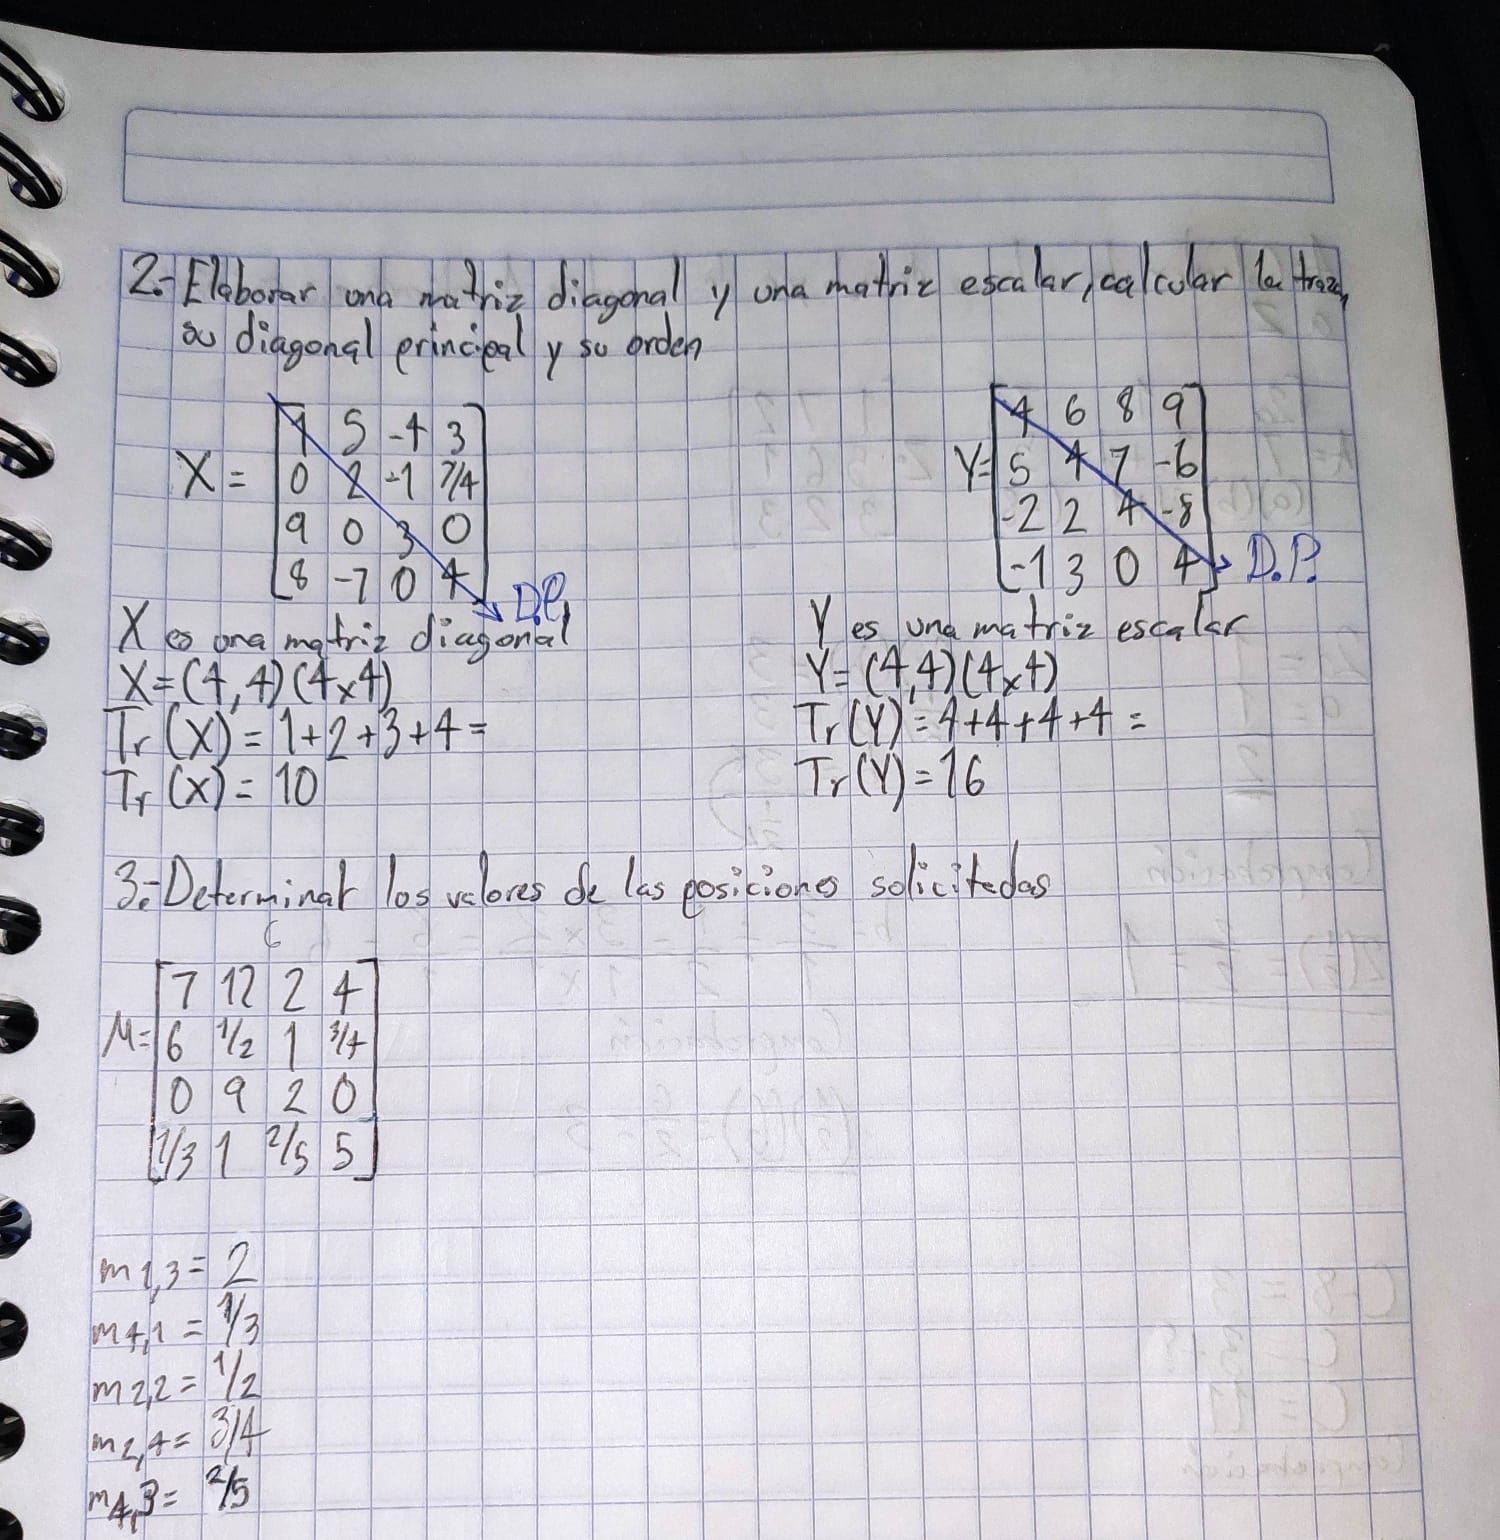 2.- Elaborar una matriz diagonal y una matriz escalar, calcular la traza,
su diagonal principal y su orden
X = [1 5 -4 3
0 2 -1 7/4
9 0 3 0
8 -7 0 4] D.P.
X es una matriz diagonal
X=(4,4)(4x4)
Tr(X)=1+2+3+4=
Tr(X)=10
Y= [4 6 8 9
5 4 7 -6
-2 2 4 -8
-1 3 0 4] D.P.
Y es una matriz escalar
Y=(4,4)(4x4)
Tr(Y)=4+4+4+4=
Tr(Y)=16
3.- Determinar los valores de las posiciones solicitadas
M= [7 12 2 4
6 1/2 1 3/4
0 9 2 0
1/3 1 2/5 5]
m1,3=2
m4,1=1/3
m2,2=1/2
m2,4=3/4
m4,3=2/5